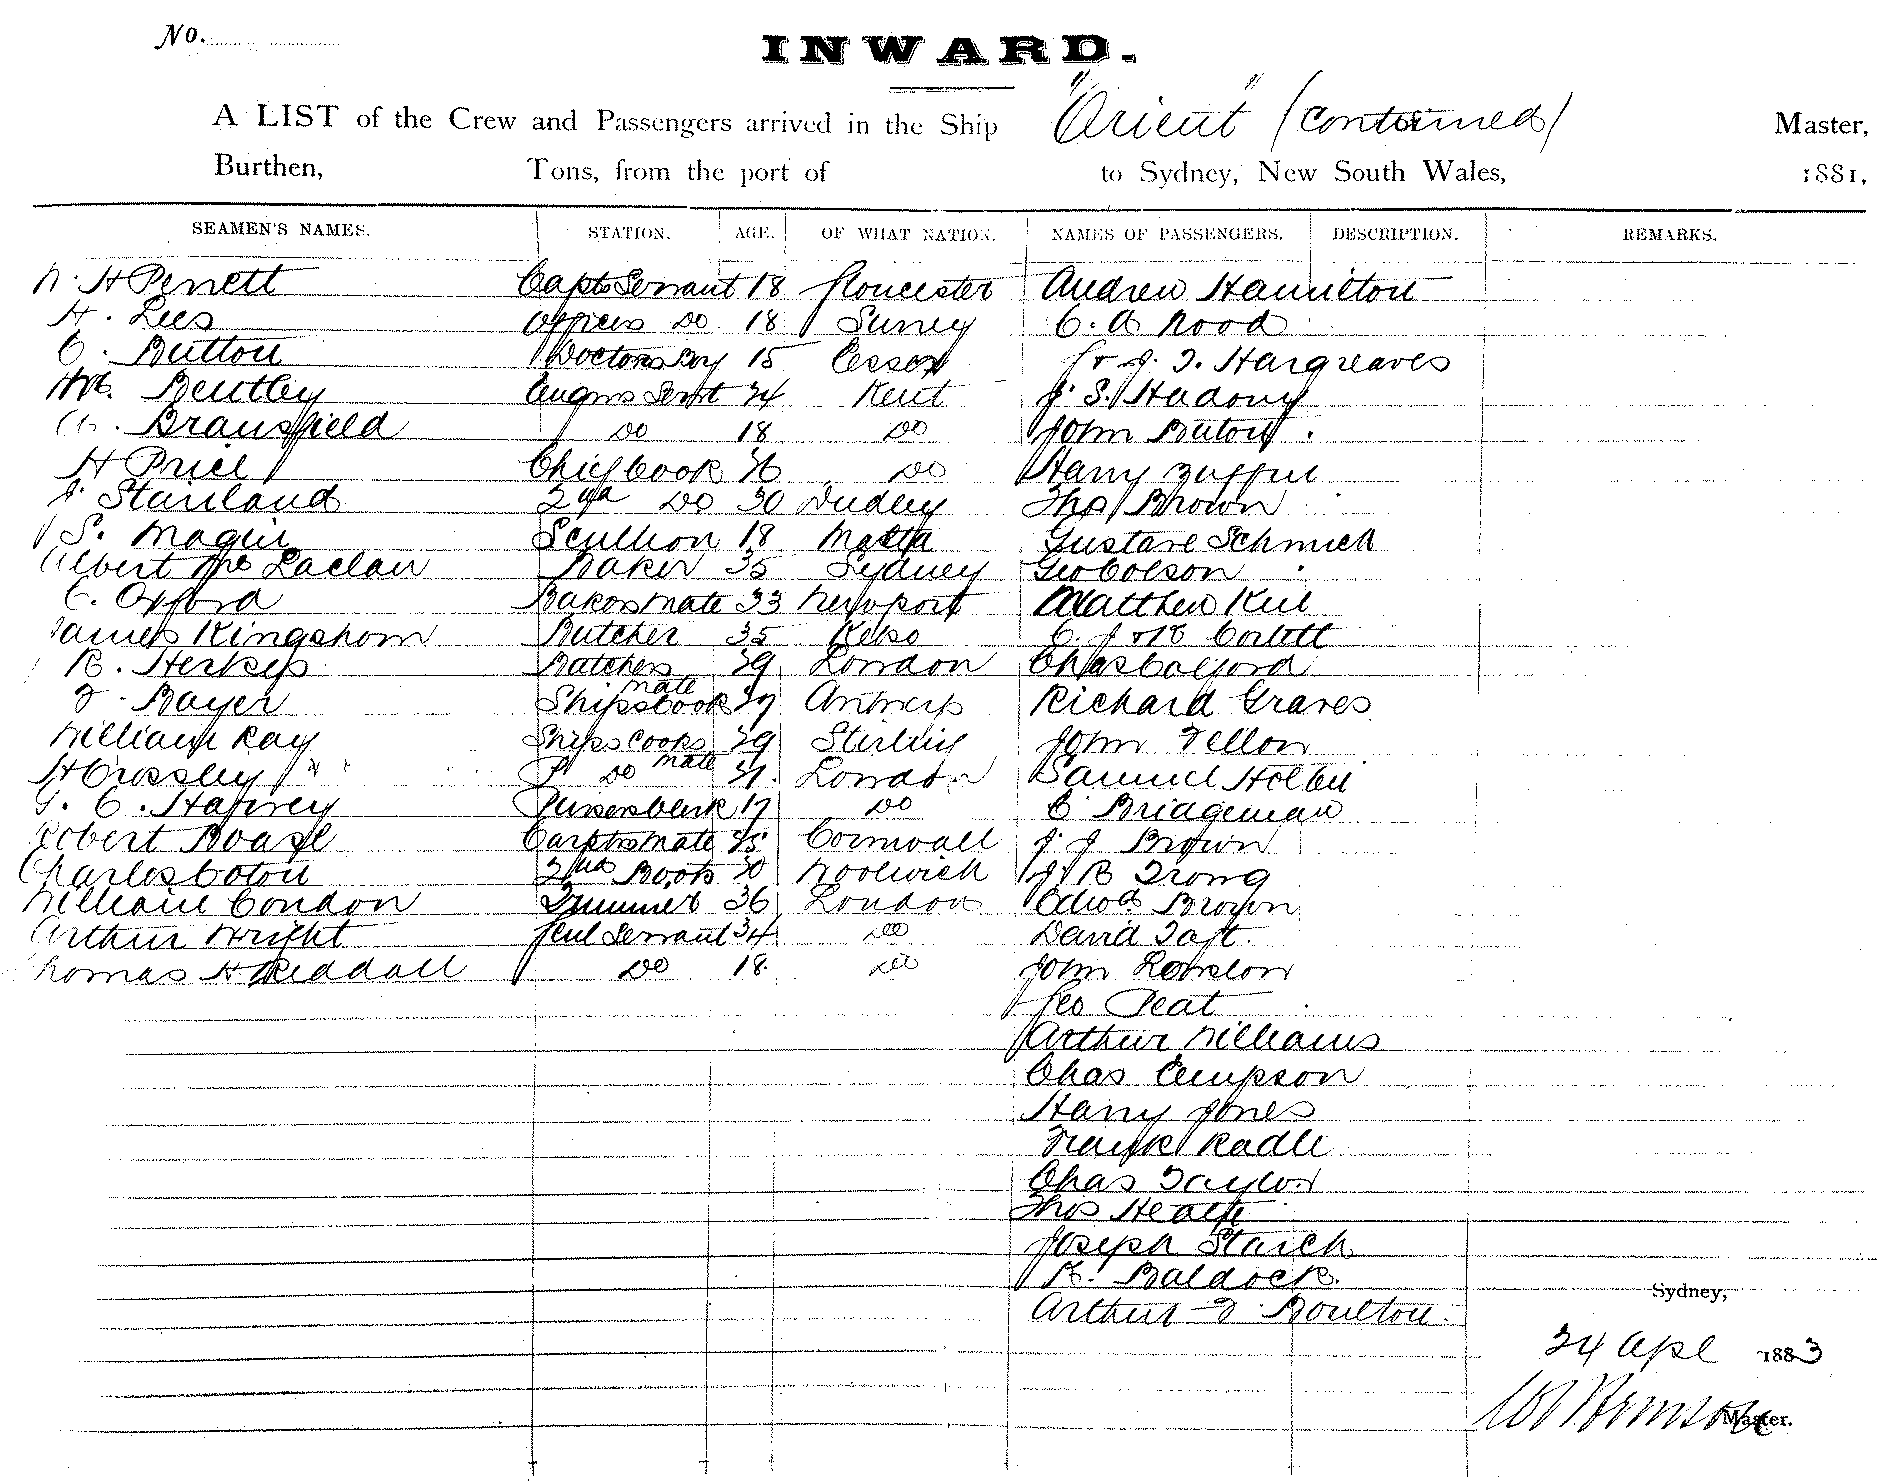 No.
INWARD.
A LIST of the Crew and Passengers arrived in the Ship "Orient" (continued) Master,
Burthen, Tons, from the port of to Sydney, New South Wales, 1881,
SEAMEN'S NAMES. STATION. AGE. OF WHAT NATION. NAMES OF PASSENGERS. DESCRIPTION. REMARKS.
H Perrett Capts Servant 18 Gloucester Andrew Hamilton
H. Lees Officers Do 18 Surrey C. A Rood
C. Button Doctors Boy 15 Essex J. T. Hargreaves
Bentley Engrs Servt 24 Kent J. S.
Bransfield Do 18 Do John
H Price Chief Cook 36 Do Harry
J. Staniland 2nd Do 30 Dudley Thos Brown
S. Magin Scullion 18 Malta Gustave Schmich
Albert Mc Laclan Baker 35 Sydney Geo Colson
C. Oxford Bakers Mate 33 Newport Matthew
James Kingshorn Butcher 35 Kelso C. J & B Corlett
R. Butchers mate 29 London Chas Calford
Bayer Ships Cook 39 Antwerp Richard Graves
William Ray Ships Cooks mate 29 Stirling John
H Crossley Do London Samuel
C. Harvey Pursers Clerk 17 Do C Bridgeman
Robert Boase Carptrs Mate Cornwall J. J Brown
Charles Coton 2nd Boots 30 Woolwich J. B
William Condon Trimmer 36 London Edwd Brown
Arthur Wright Genl Servant 34 Do David Taft.
Thomas H Riddall Do 18 Do John
Geo Peat
Arthur Williams
Chas Empson
Harry Jones
Frank Radle
Chas Taylor
Thos Heath
Joseph Starch
R. Baldock.
Arthur Boulton.
Sydney,
24 Apl 1883
Master.